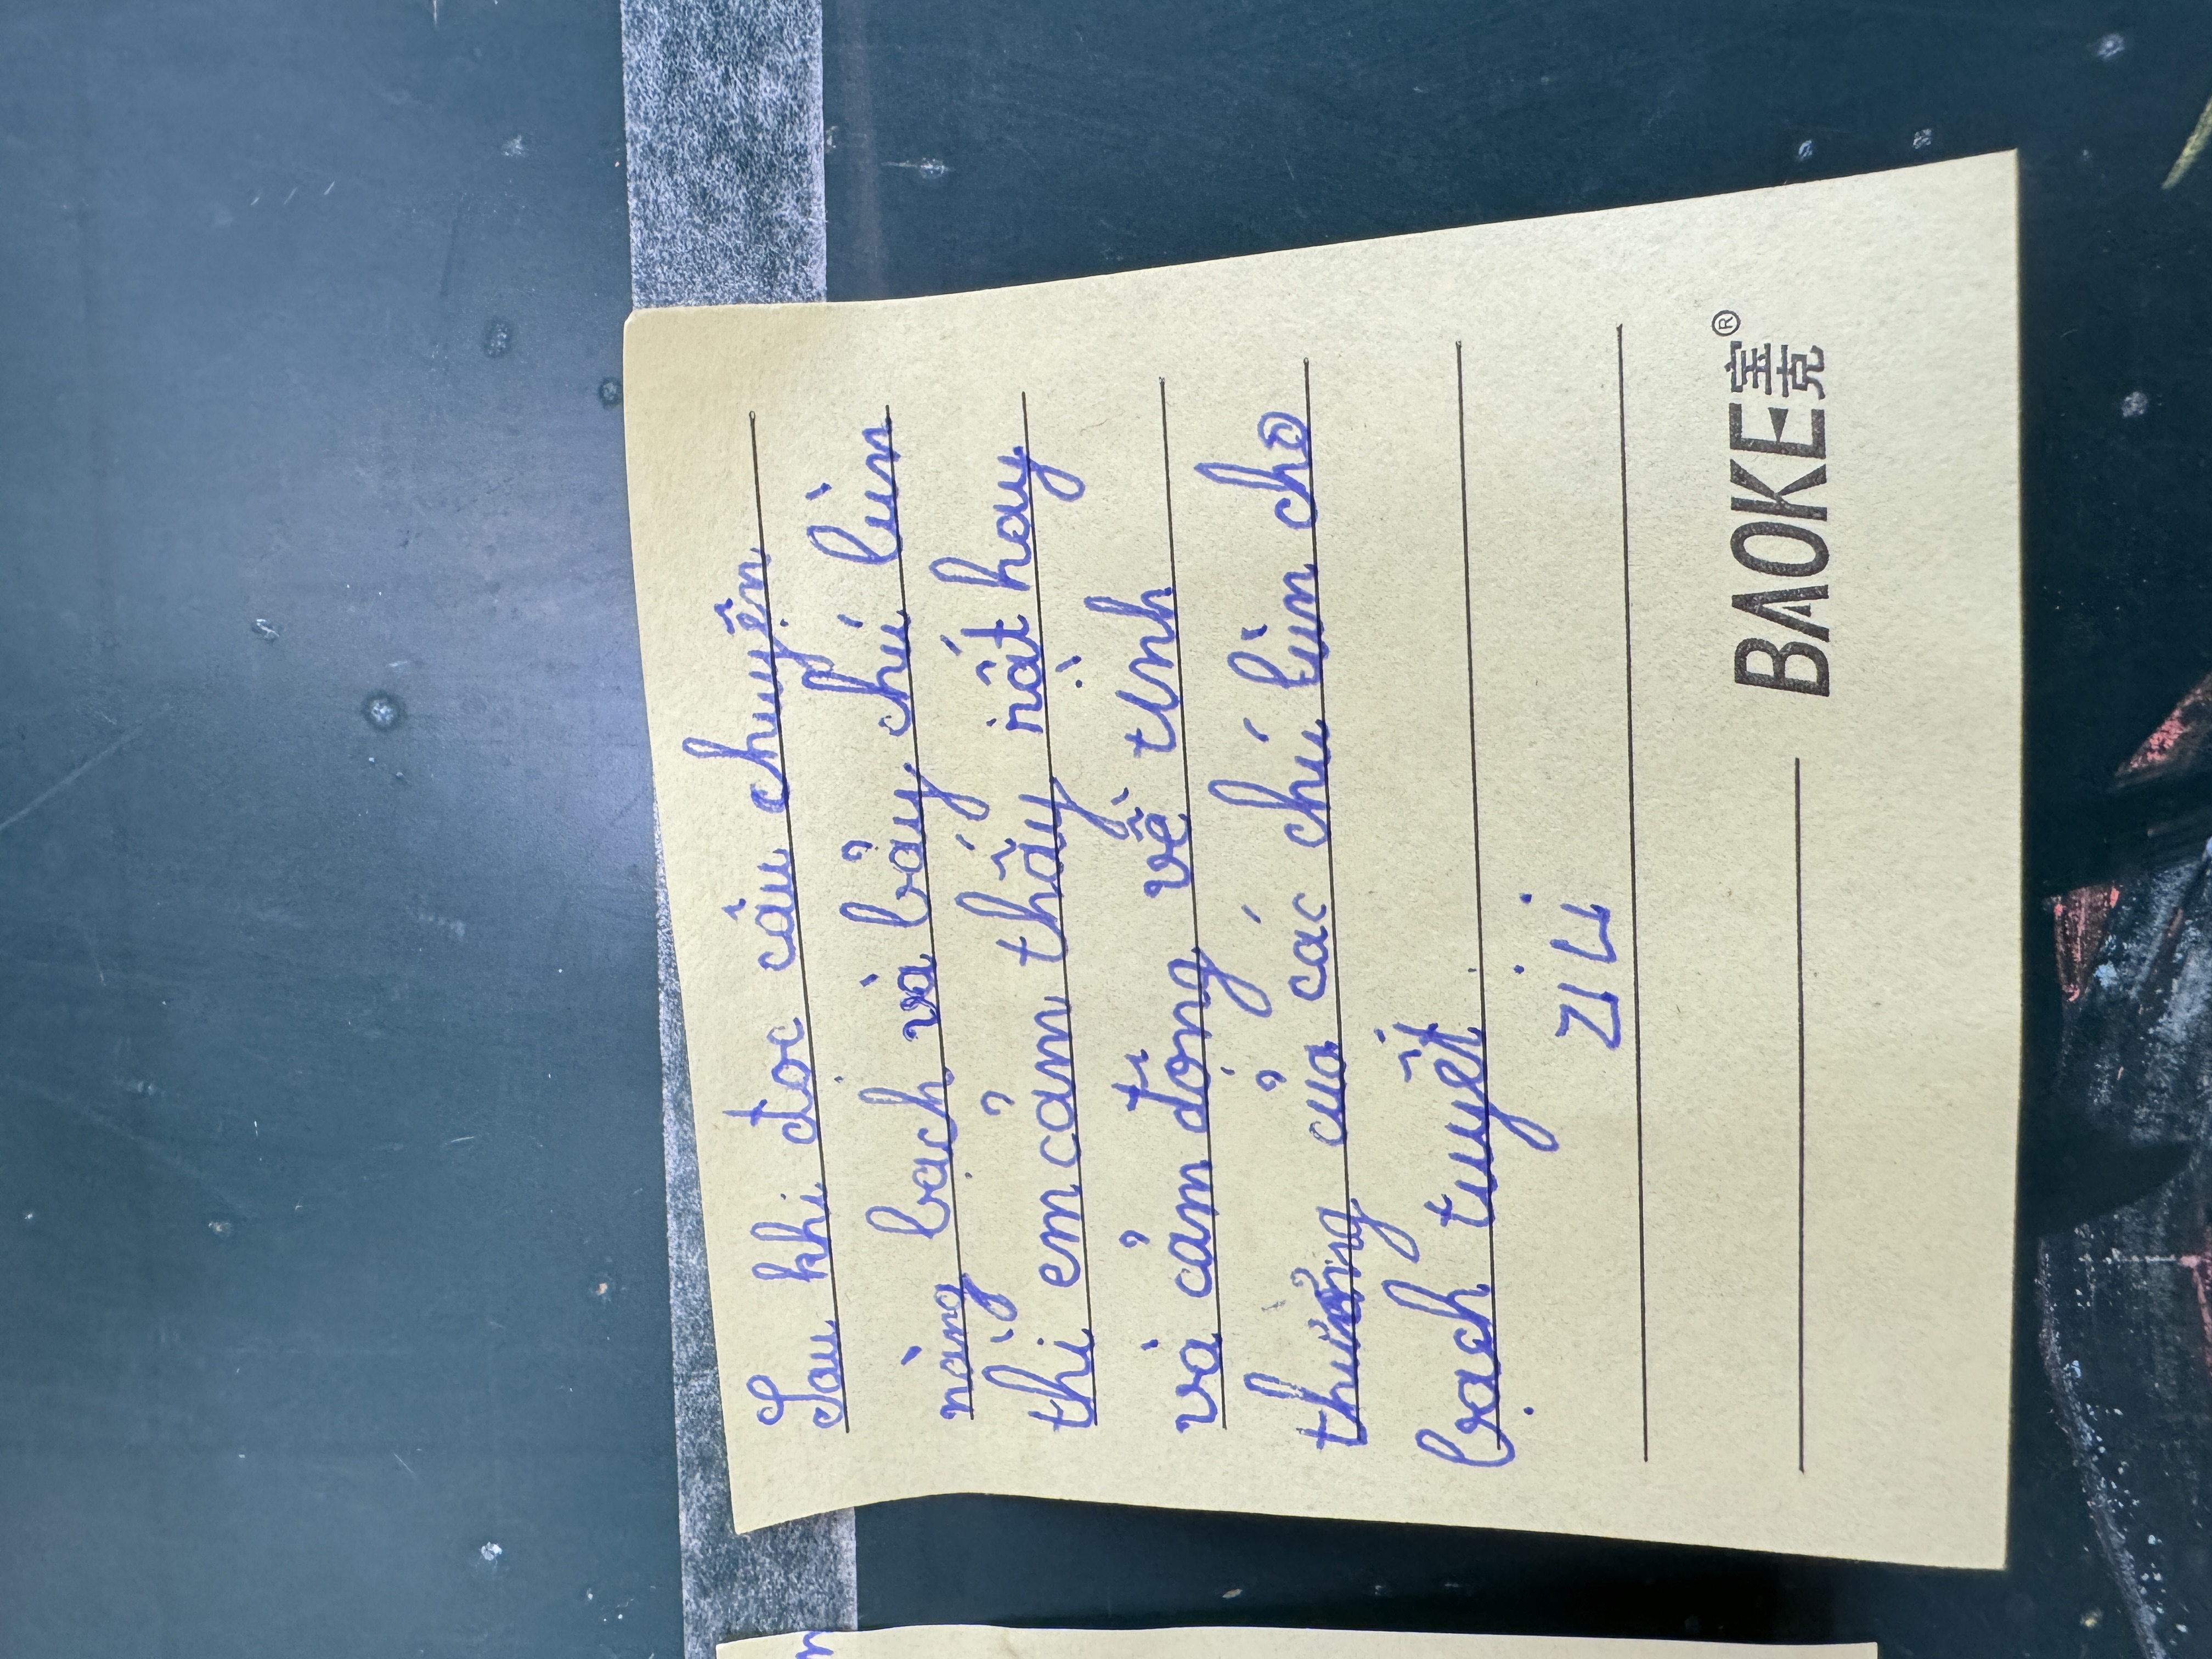 Sau khi đoc câu chuyện
nàng bạch và bảy chú lùn
thì em cảm thầy rất hay
và cảm động về tình
thưởng của các chú lùn cho
bạch tuyết
ZILI
BAOKE宝克®